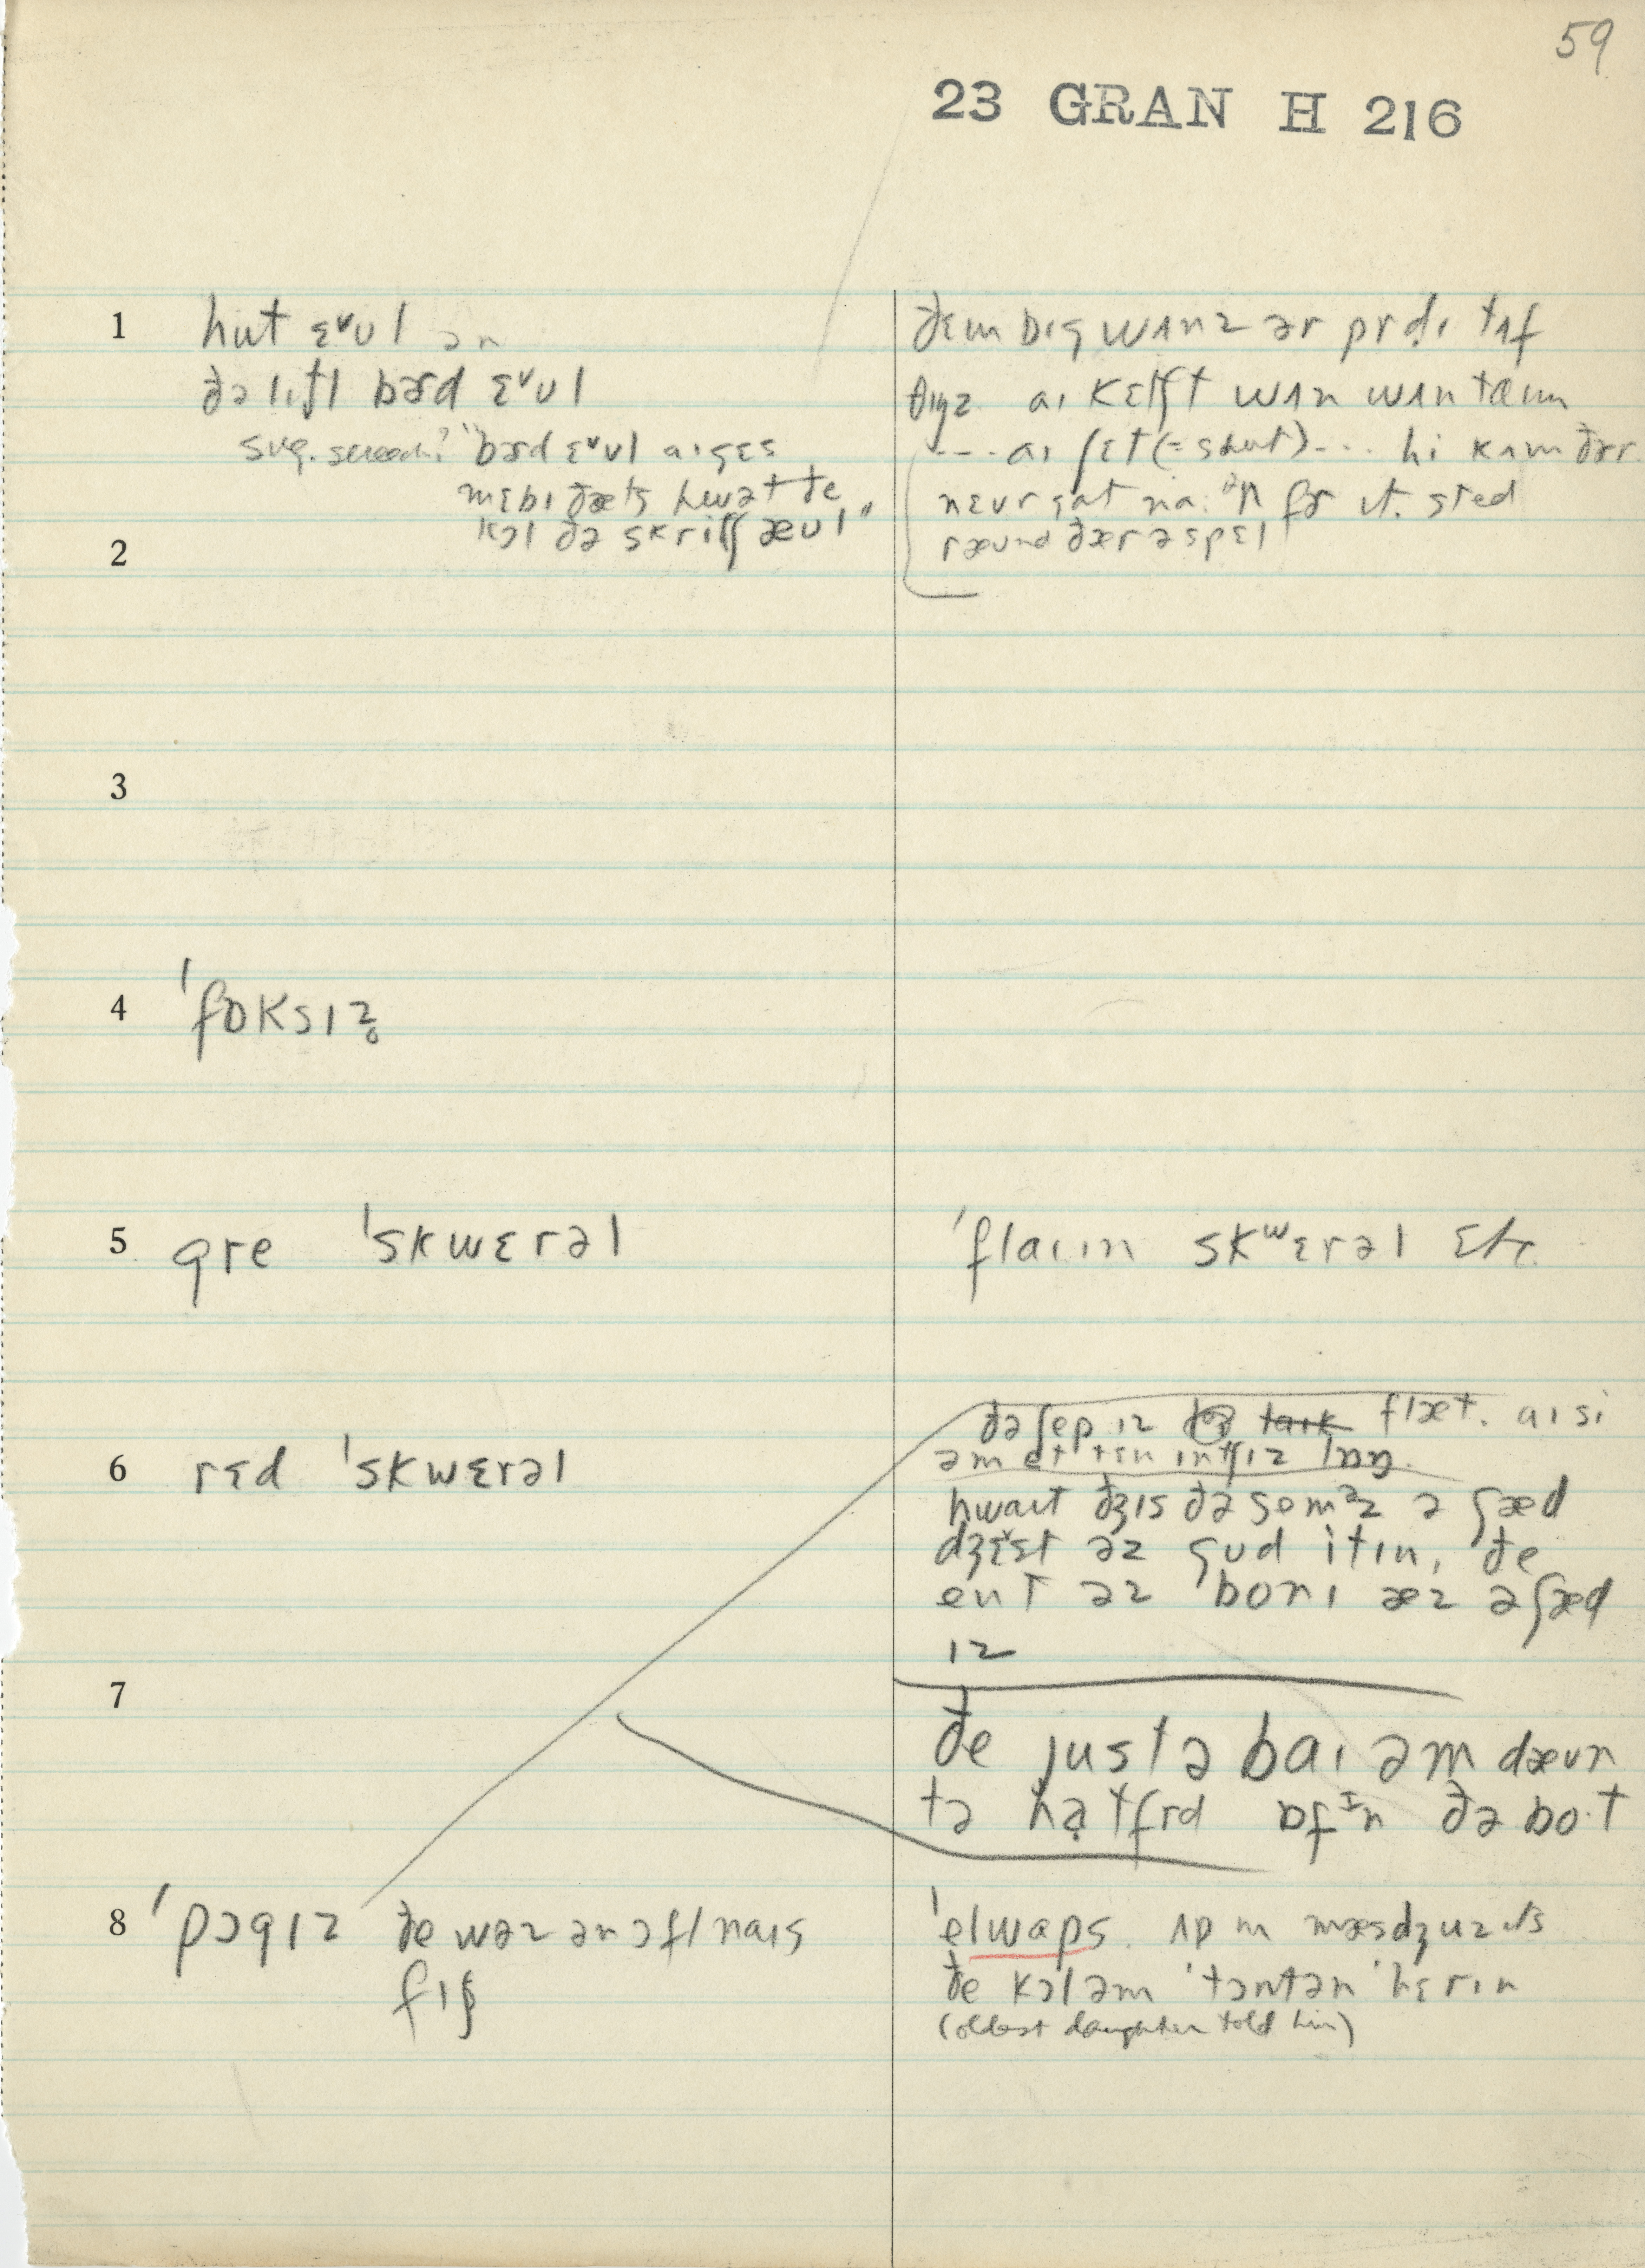 59
23 GRAN H 216
1 hut ɛᵛʊl ən
ðə lɪtl bɚd ɛᵛʊl
sug. screech? "bɚd ɛᵛʊl aɪ gɛs
mɛbɪ ðæts hwət ðe
kɔl ðə skritʃ æʊl"
ðɛm bɪg wʌnz ər prdɪ tʌf
θɪŋz aɪ kɛtʃt wʌn wʌn taɪm
--- aɪ ʃɛt (= shut) --- hi kʌm ðær
nɛvr gat na.ᵊn fɚ ɪt. sted
ræʊnd ðær ə spɛl
2
3
4 ˈfɒksɪz̥
5 gre ˈskwɛrəl
ˈflaɪɪn skʷɛrəl etc.
6 rɛd ˈskwɛrəl
ðə ʃep ɪz laɪk flæt. aɪ si
əm ət tɛn ɪntʃɪz lɒŋ.
hwaɪt ðɪs ðə somᵊz ə ʃæd
dʒɛ̌st əz gʊd itɪn, ðe
ent əz ˈbonɪ æz ə ʃæd
ɪz
7
ðe justə baɪ əm dæʊn
tə hatfrd ɒfᴵn ðə bo·t
8 ˈpɔgɪz ðe wəz ən ɔfl naɪs
fɪʃ
ˈelwaɪps. ʌp ɪn mæsdʒuzɪts
ðe kɔl əm ˈtɔntən ˈhɛrɪn
(oldest daughter told him)